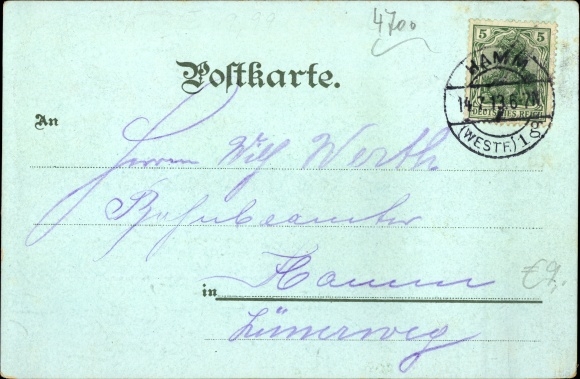 4700
5 5
DEUTSCHES REICH
HAMM
14.7.13.6-7N
(WESTF.) 1 g
Postkarte.
An
Herrn Wilh Werth
Bahnbeamter
in Hamm
€9,
Lünerweg